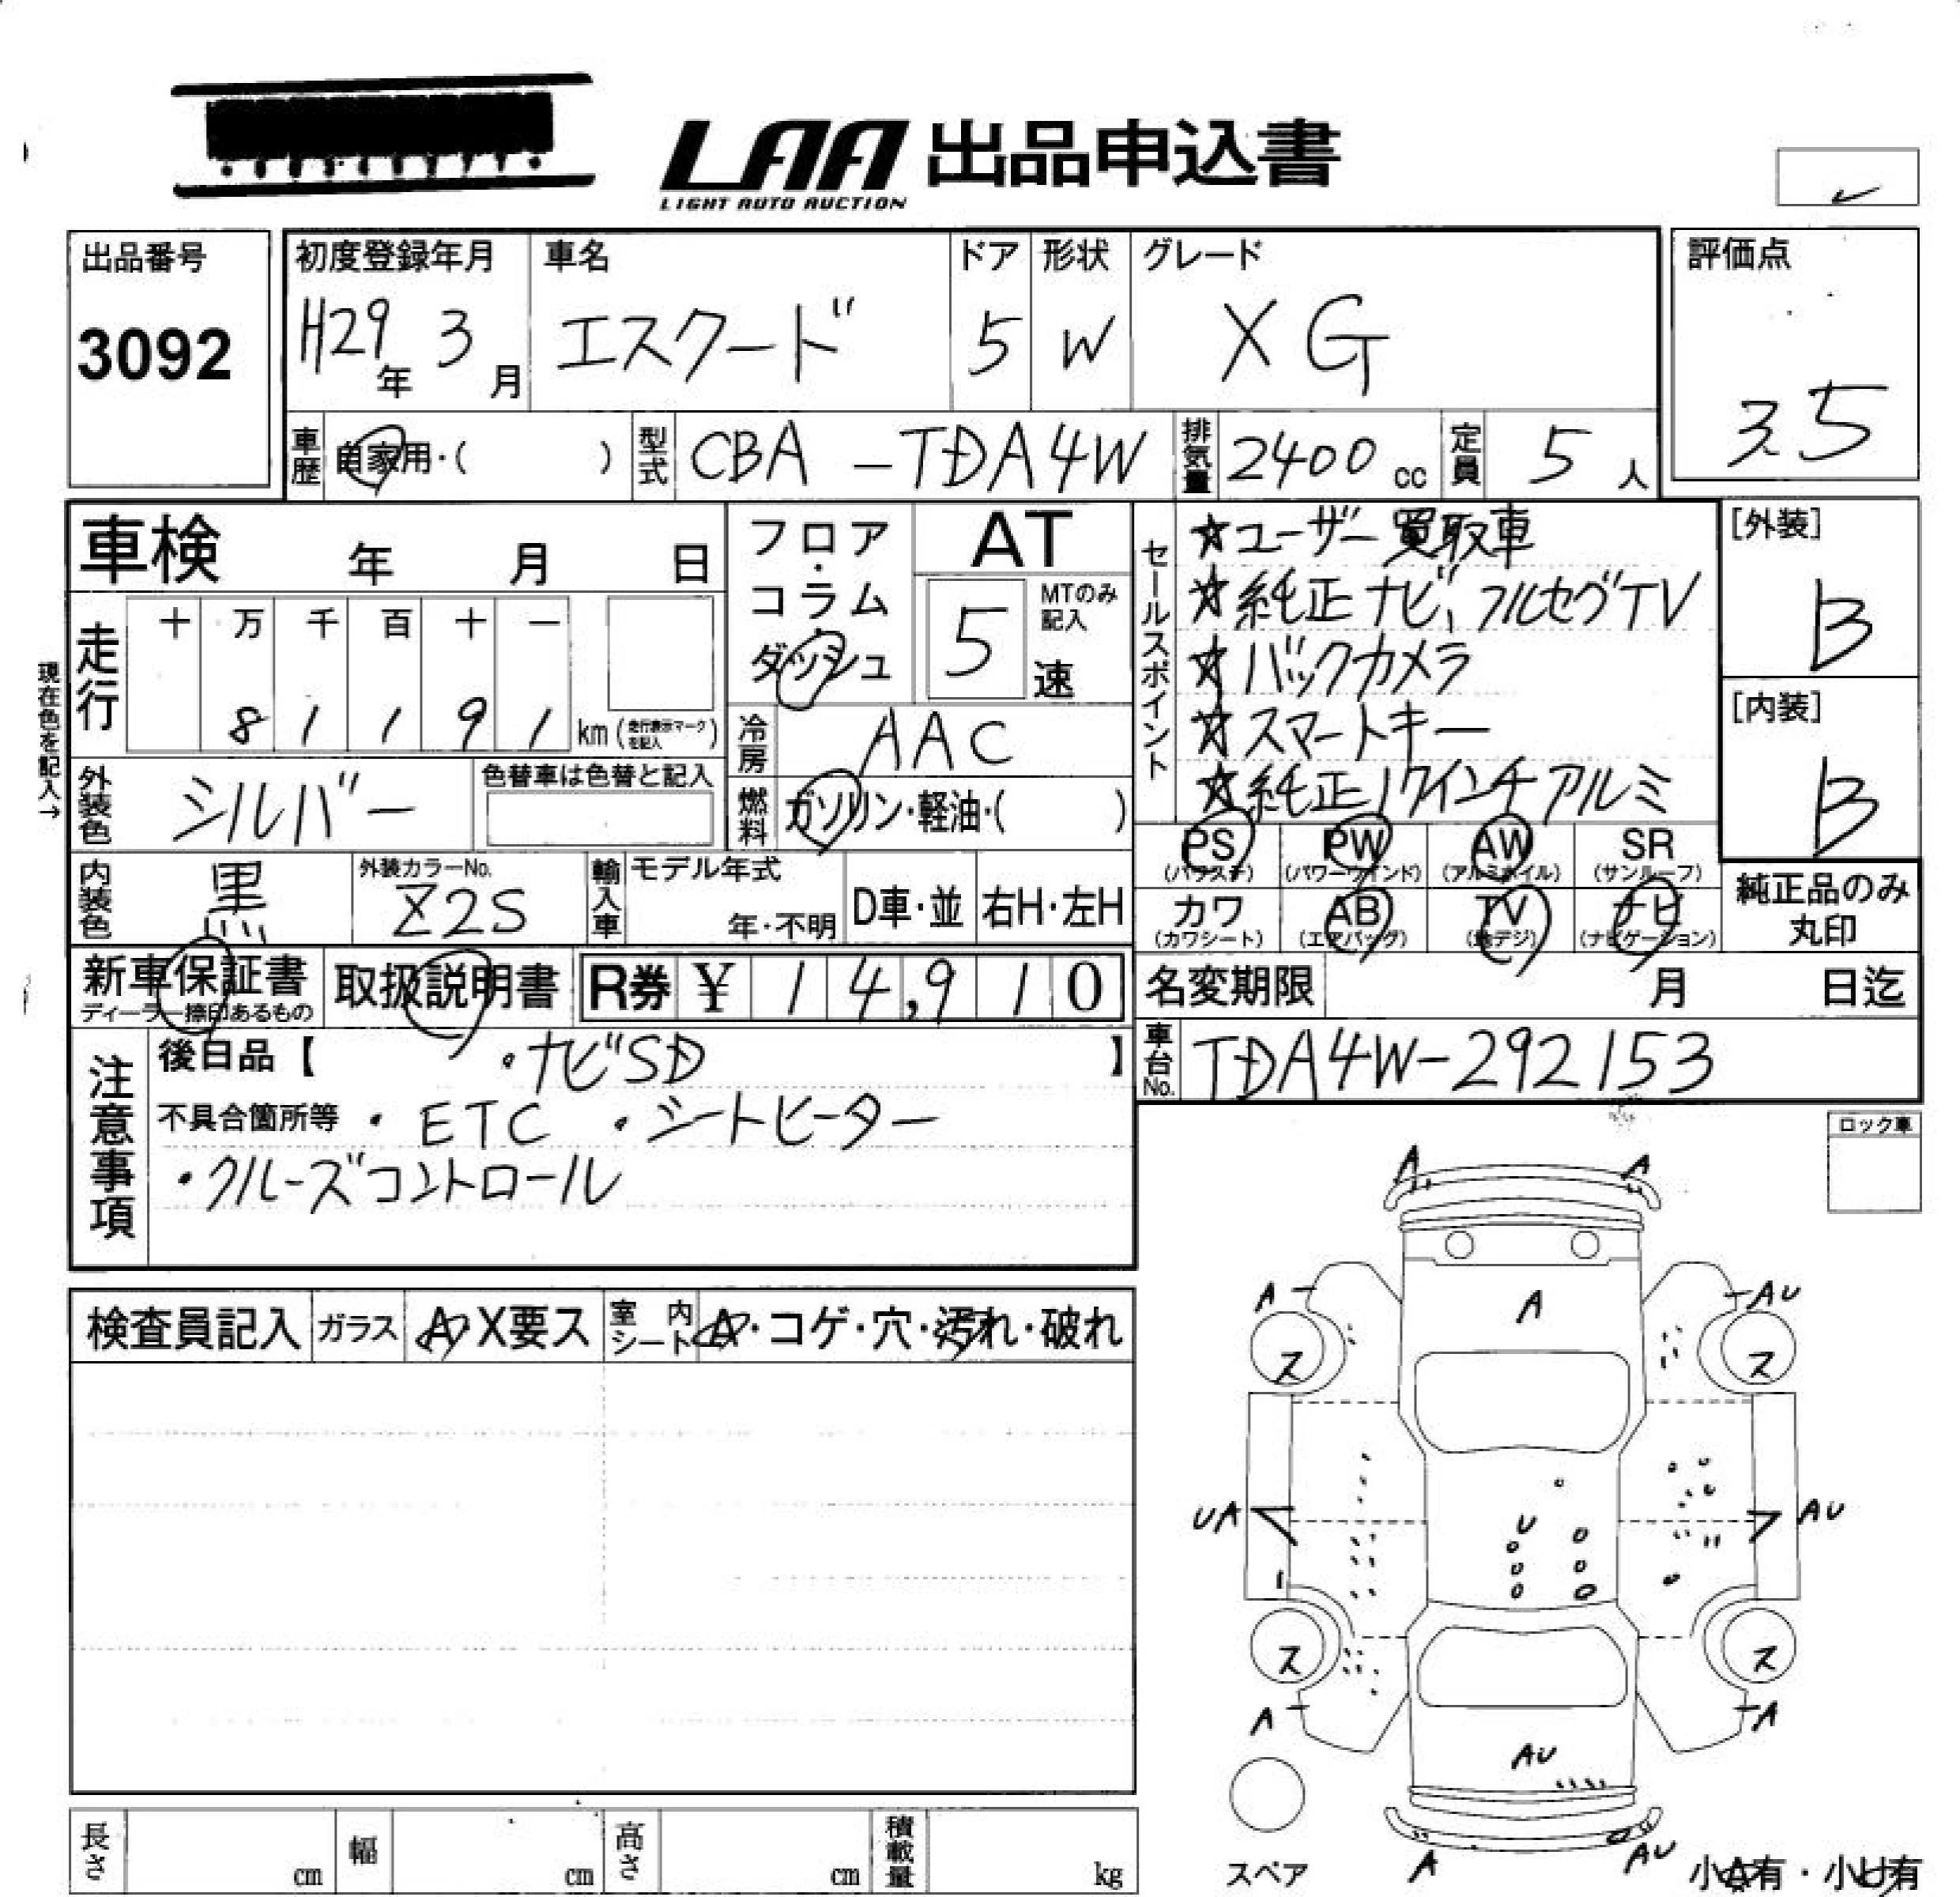 LAA 出品申込書
LIGHT AUTO AUCTION
出品番号
3092
初度登録年月
H29年 3月
車名
エスクード
ドア
5
形状
W
グレード
XG
評価点
3.5
車歴
自家用・( )
型式
CBA-TDA4W
排気量
2400 cc
定員
5 人
車検 年 月 日
フロア・コラム・ダッシュ
AT
5
MTのみ記入
速
セールスポイント
☆ユーザー買取車
☆純正ナビ、フルセグTV
☆バックカメラ
☆スマートキー
☆純正17インチアルミ
[外装]
B
[内装]
B
現在色を記入→
走行
十 万 千 百 十 一
8 1 1 9 1 km(走行表示マークを記入)
冷房
AAC
外装色
シルバー
色替車は色替と記入
燃料
ガソリン・軽油・( )
PS
(パワステ)
PW
(パワーウインド)
AW
(アルミホイル)
SR
(サンルーフ)
内装色
黒
外装カラーNo.
Z2S
輸入車
モデル年式
年・不明
D車・並
右H・左H
カワ
(カワシート)
AB
(エアバッグ)
TV
(地デジ)
ナビ
(ナビゲーション)
純正品のみ
丸印
新車保証書
ディーラー捺印あるもの
取扱説明書
R券 ¥ 1 4,9 1 0
名変期限 月 日迄
車台No.
TDA4W-292153
注意事項
後日品【 ・ナビSD 】
不具合箇所等 ・ETC ・シートヒーター
・クルーズコントロール
ロック車
検査員記入
ガラス
A・X要ス
室内シート
A・コゲ・穴・汚れ・破れ
A A
A A AU
ス ス
UA U AU
ス ス
A A
AU
A AU
スペア
小A有・小U有
長さ cm
幅 cm
高さ cm
積載量 kg